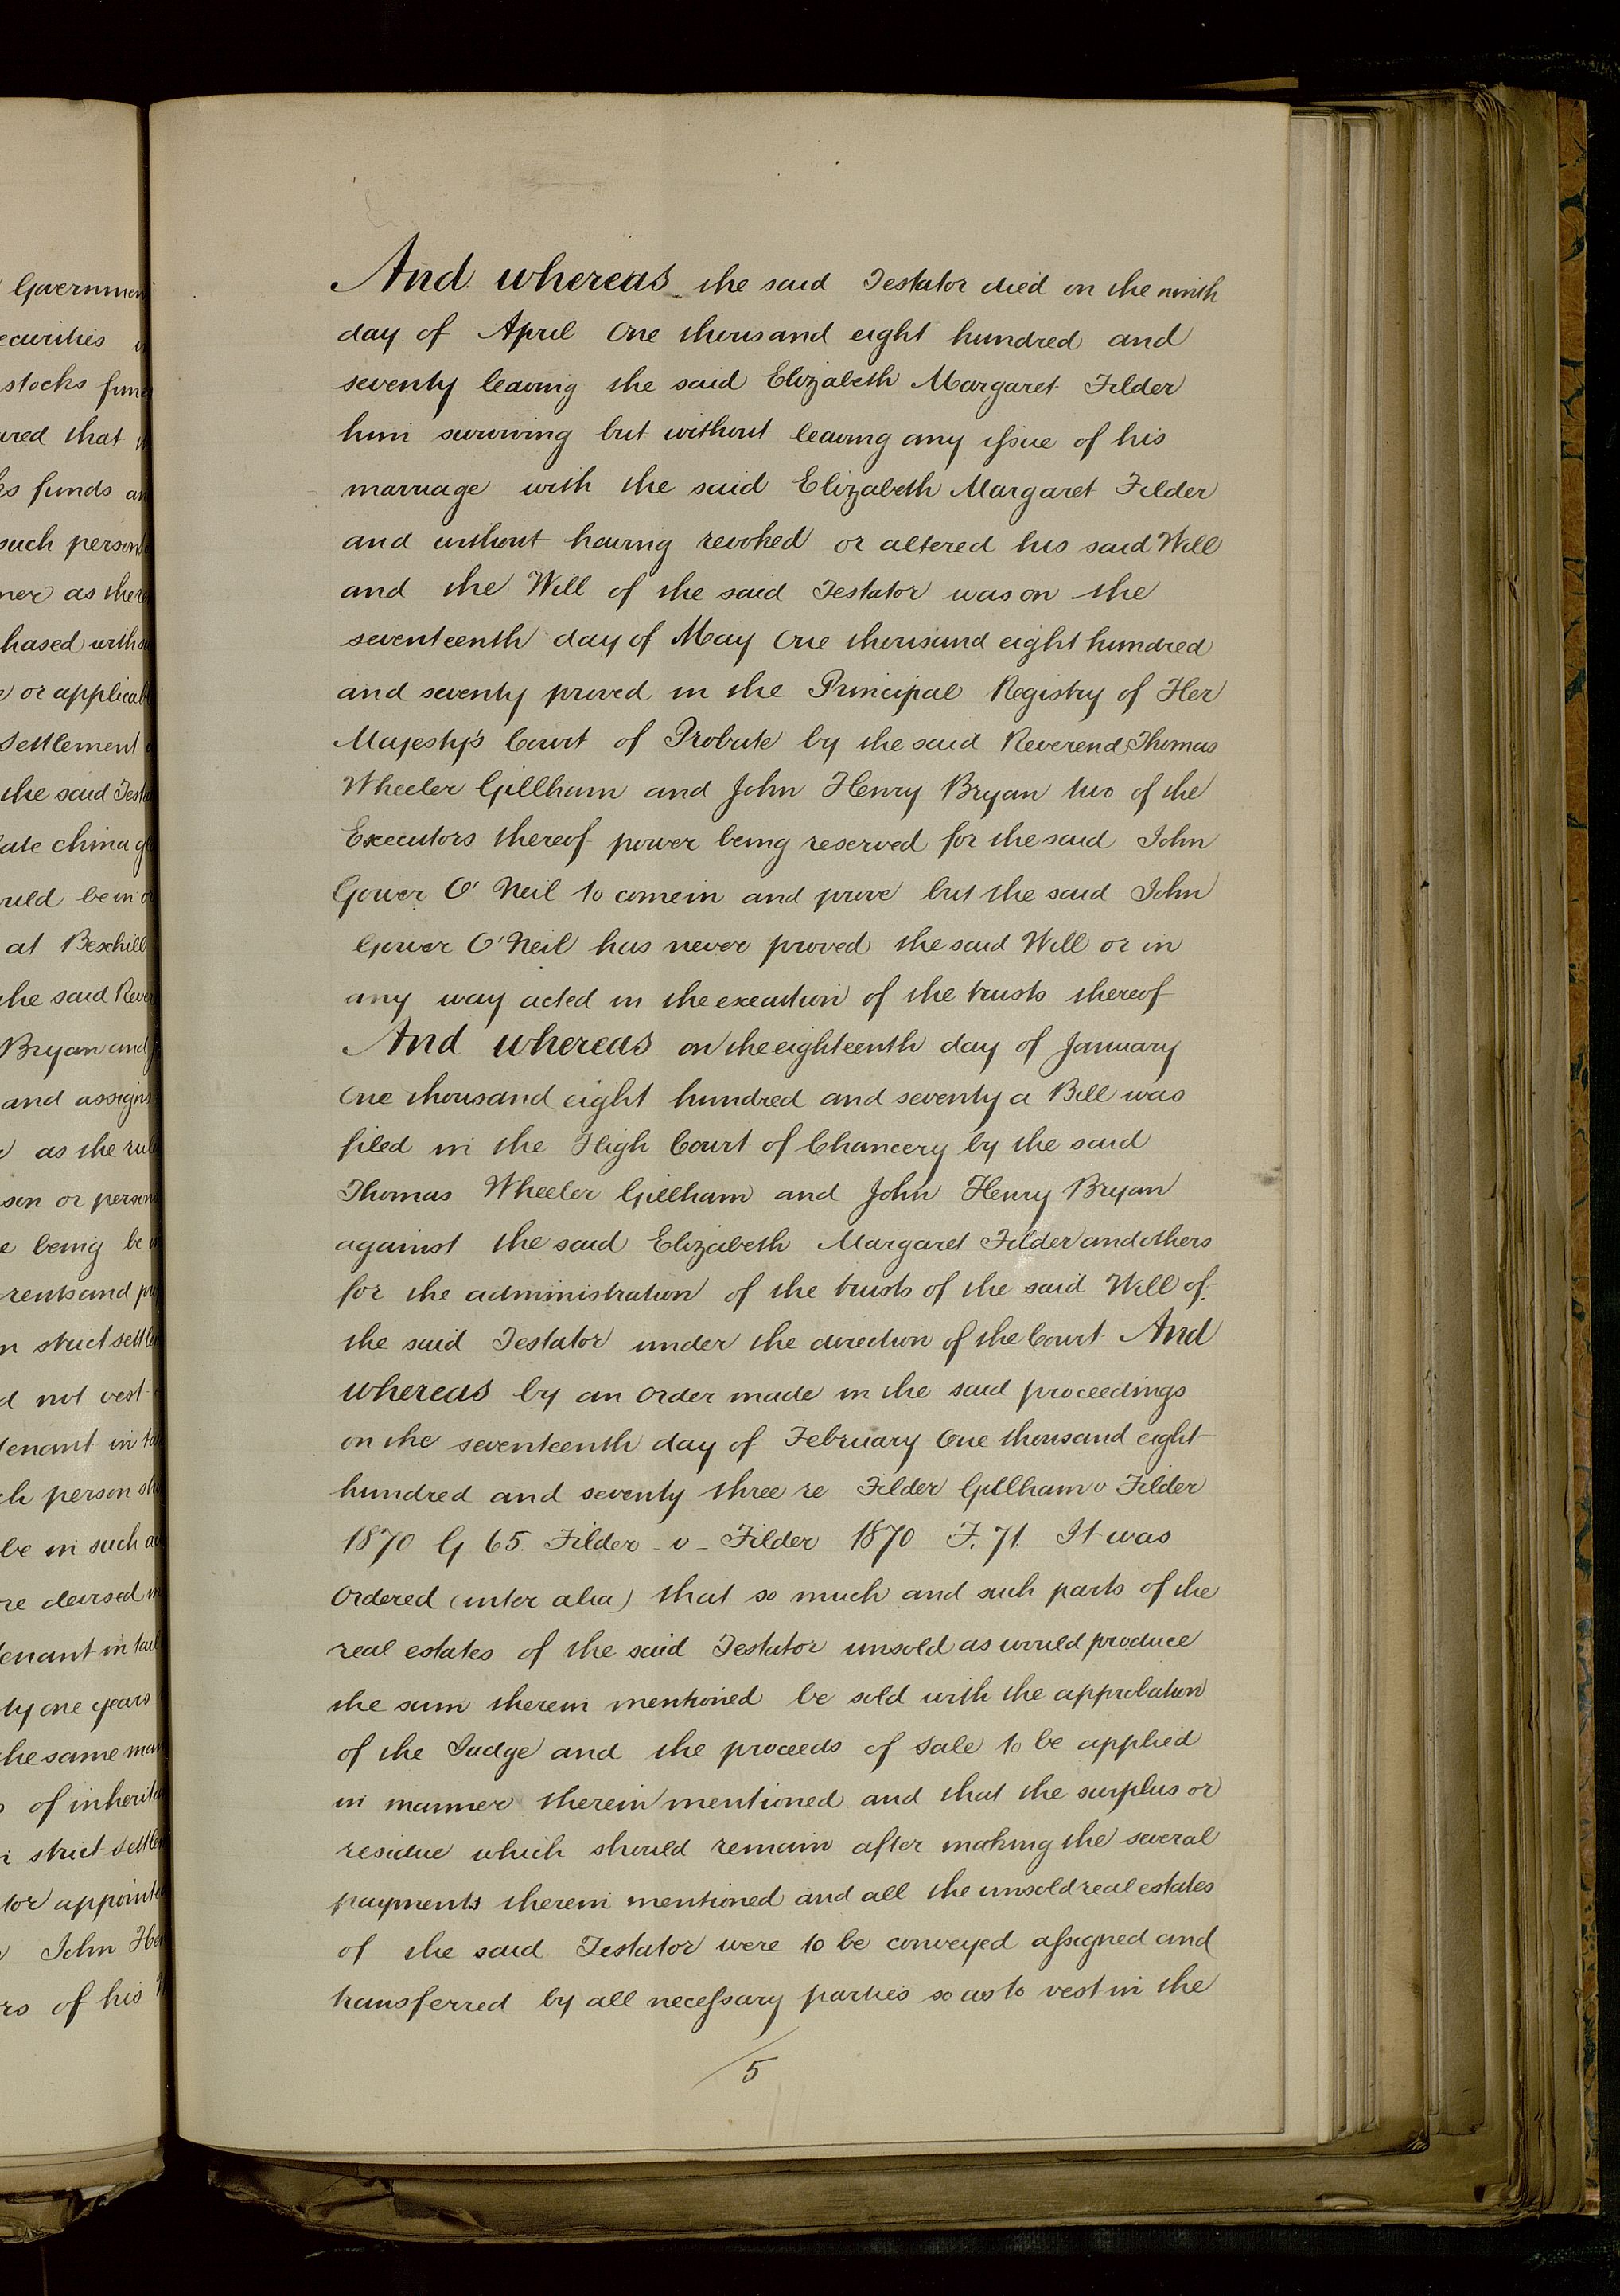 Governmen
ecurities
stocks fun
ured that
ks funds an
such person
ner as there
hased with
or applicab
settlement
the said Testa
late china gl
uld be in
at Bexhill
the said Rever
Bryan and
and assigns
as the rul
son or person
e being be
rents and pro
n strict settle
d not vest
tenant in ta
ch person sh
be in such
re devised in
enant in tail
ty one years
the same man
of inherita
n strict settle
tor appointe
John He
rs of his
And whereas the said Testator died on the ninth
day of April One thousand eight hundred and
seventy leaving the said Elizabeth Margaret Filder
him surviving but without leaving any issue of his
marriage with the said Elizabeth Margaret Filder
and without having revoked or altered his said Will
and the Will of the said Testator was on the
seventeenth day of May One thousand eight hundred
and seventy proved in the Principal Registry of Her
Majesty's Court of Probate by the said Reverend Thomas
Wheeler Gillham and John Henry Bryan two of the
Executors thereof power being reserved for the said John
Gower O'Neil to come in and prove but the said John
Gower O'Neil has never proved the said Will or in
any way acted in the execution of the trusts thereof
And whereas on the eighteenth day of January
One thousand eight hundred and seventy a Bill was
filed in the High Court of Chancery by the said
Thomas Wheeler Gillham and John Henry Bryan
against the said Elizabeth Margaret Filder and others
for the administration of the trusts of the said Will of
the said Testator under the direction of the Court And
whereas by an Order made in the said proceedings
on the seventeenth day of February One thousand eight
hundred and seventy three re Filder Gillham v Filder
1870 G 65. Filder - v - Filder 1870 F. 71. It was
Ordered (inter alia) that so much and such parts of the
real estates of the said Testator unsold as would produce
the sum therein mentioned be sold with the approbation
of the Judge and the proceeds of sale to be applied
in manner therein mentioned and that the surplus or
residue which should remain after making the several
payments therein mentioned and all the unsold real estates
of the said Testator were to be conveyed assigned and
transferred by all necessary parties so as to vest in the
5